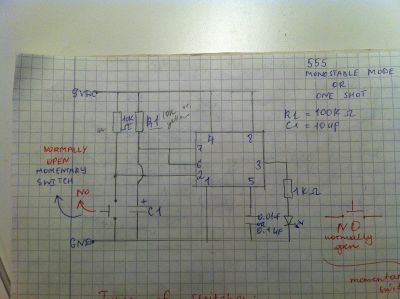 555
MONOSTABLE MODE
OR
ONE SHOT
R1 = 100K Ω
C1 = 10uF
9VDC
10K
Ω
R1
4
8
7
6
2
3
1
5
NORMALLY
OPEN
MOMENTARY
SWITCH
NO
+
C1
1KΩ
0.01uF
OR
0.1uF
GND
NO
normally
open
momentary